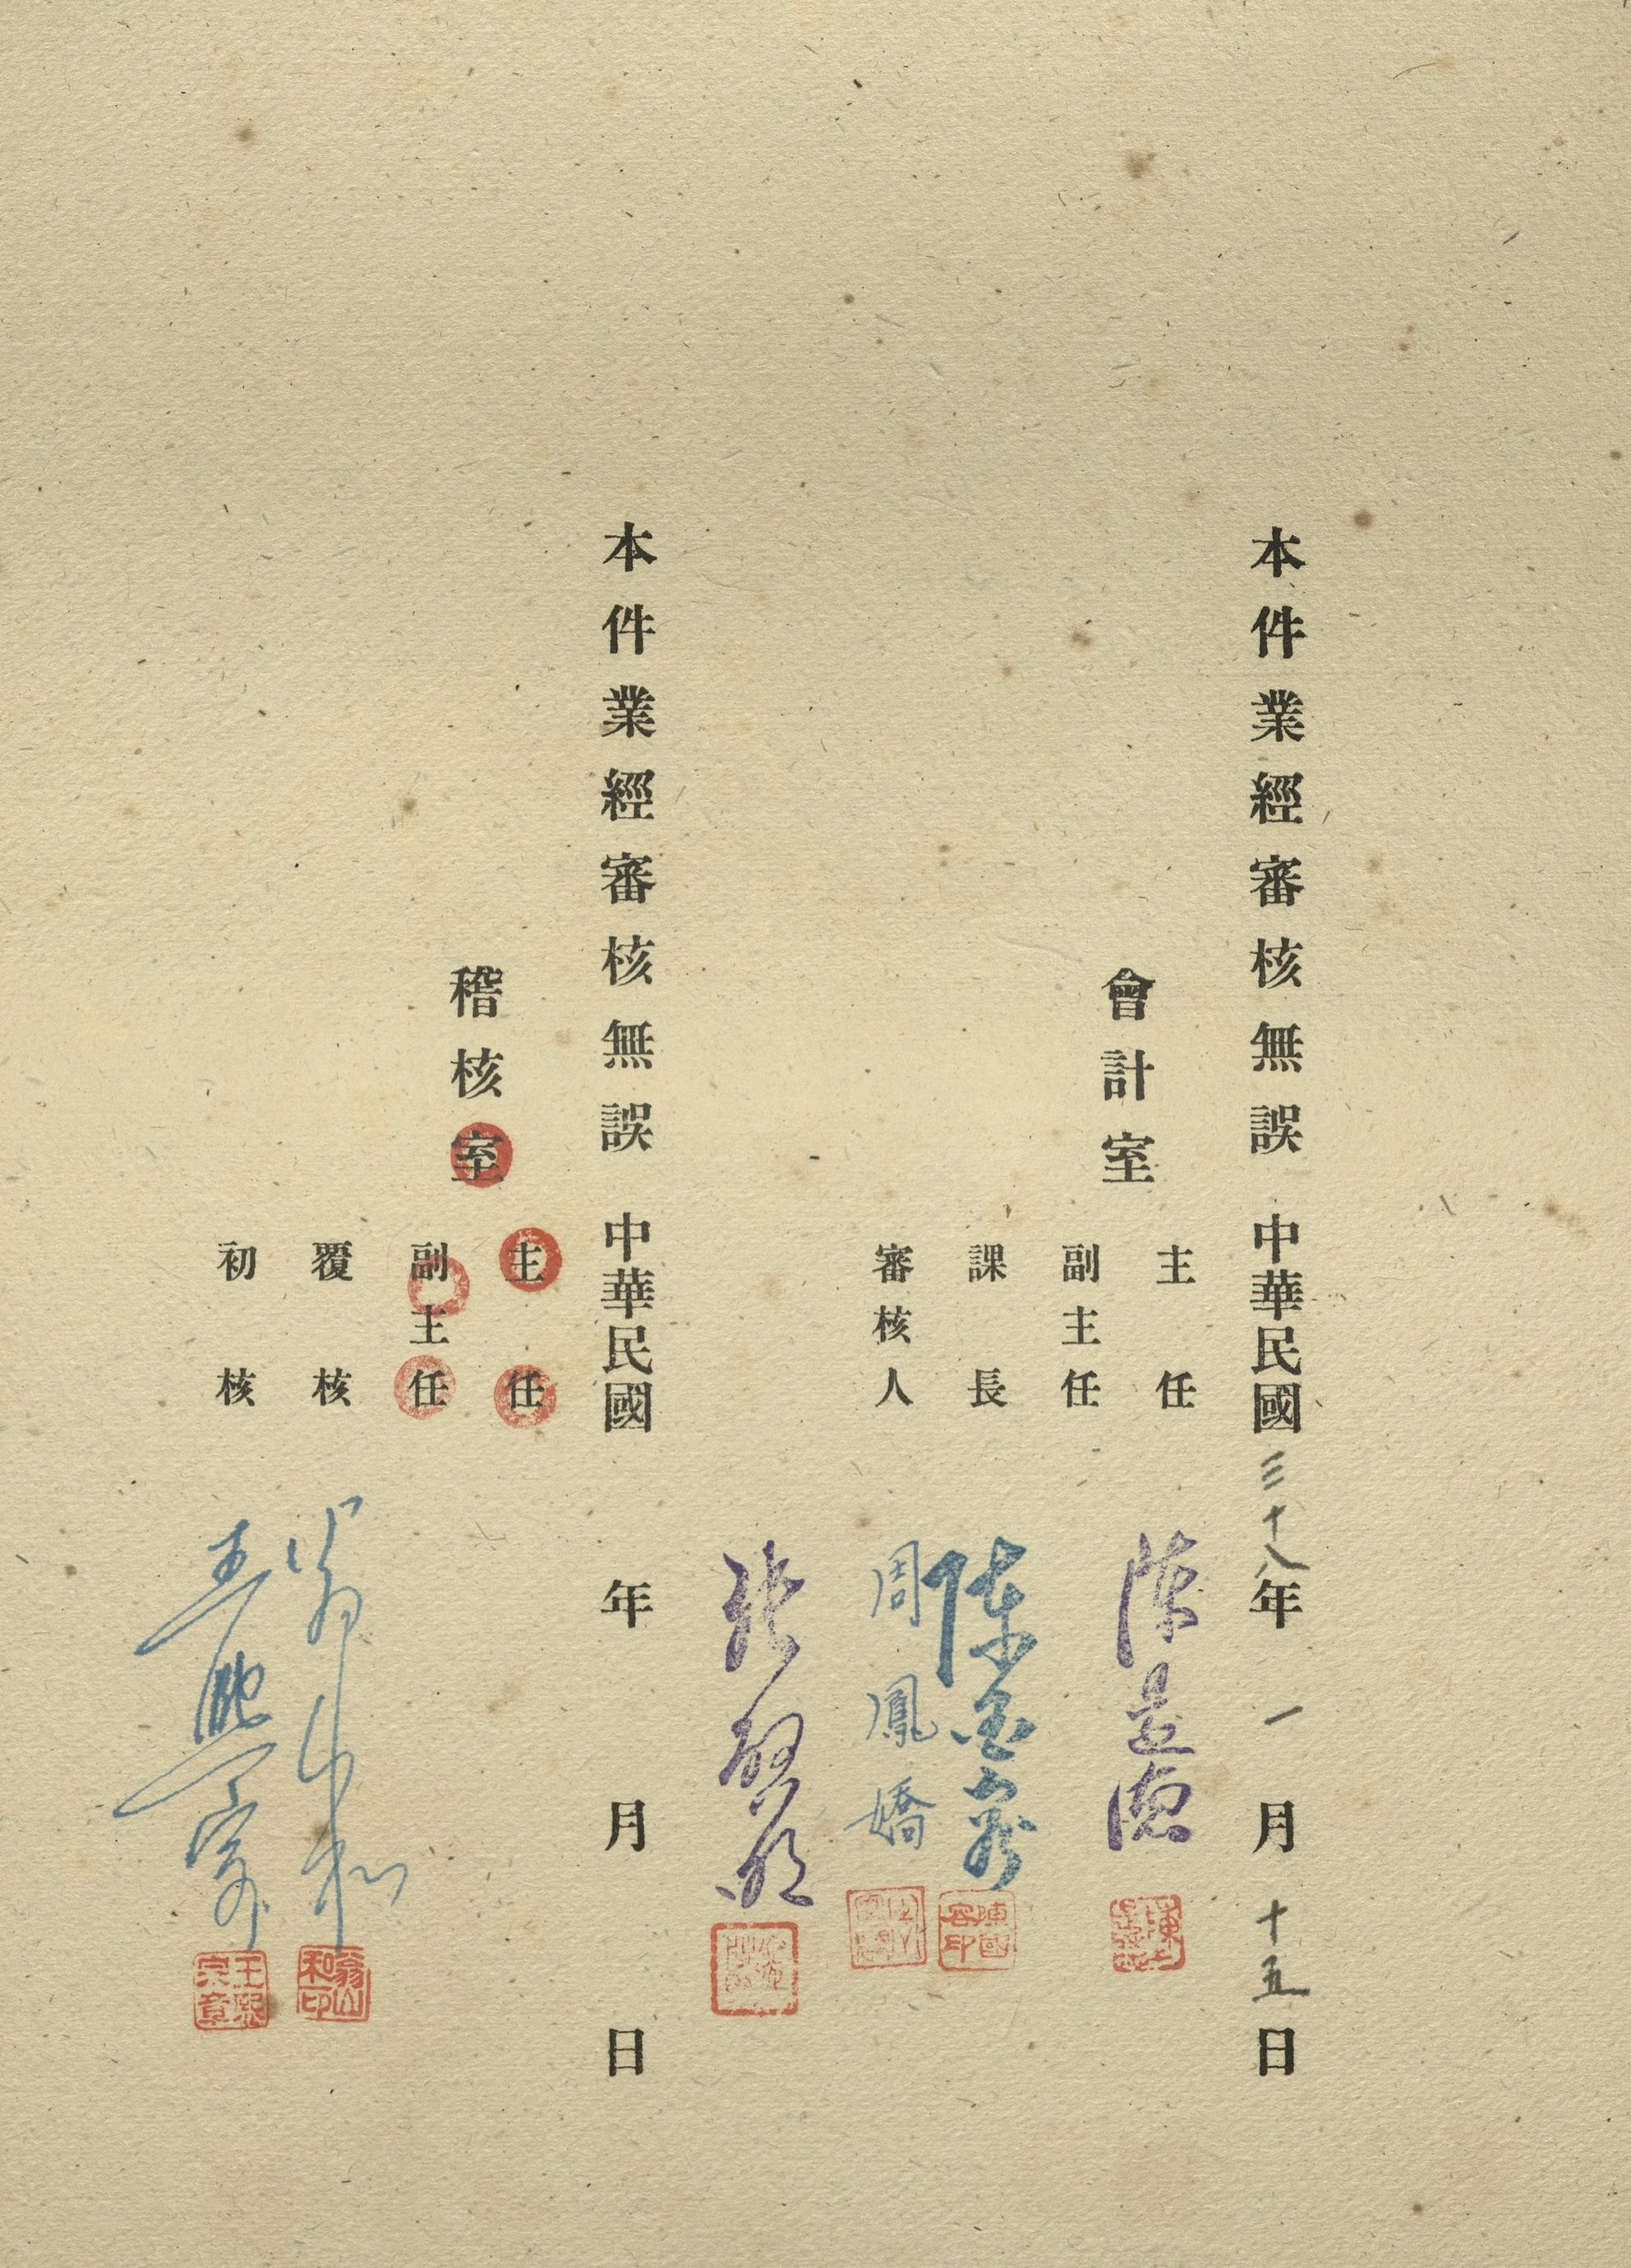 本件業經審核無誤 中華民國三十八年一月十五日
會計室
主任
副主任
課長 陳國容印
審核人 周鳳嬌
本件業經審核無誤 中華民國 年 月 日
稽核室
主任
副主任
覆核 翁山和 翁山和印
初核 王熙宗 王熙宗章